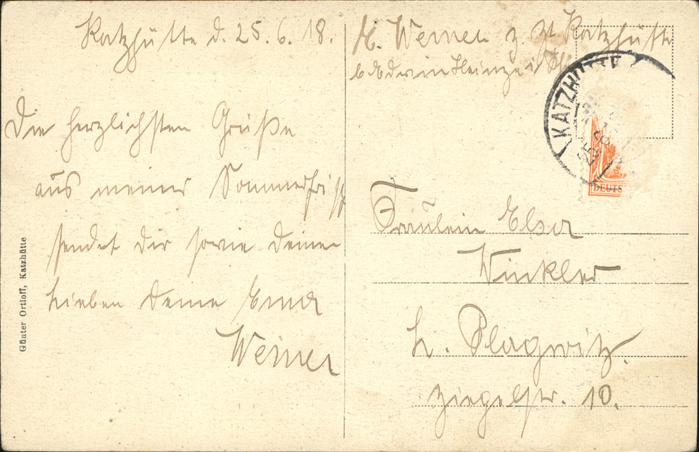 Katzhütte d. 25.6.18.
Die herzlichsten Grüße
aus meiner Sommerfrische
sendet Dir sowie Deinen
Lieben Deine Erna
Werner
E. Werner z. Zt. Katzhütte
b. Edwin Heinze i. Th.
KATZHÜTTE
DEUTS
Fräulein Elsa
Winkler
L. Plagwitz.
Ziegelstr. 10.
Günter Ortloff, Katzhütte